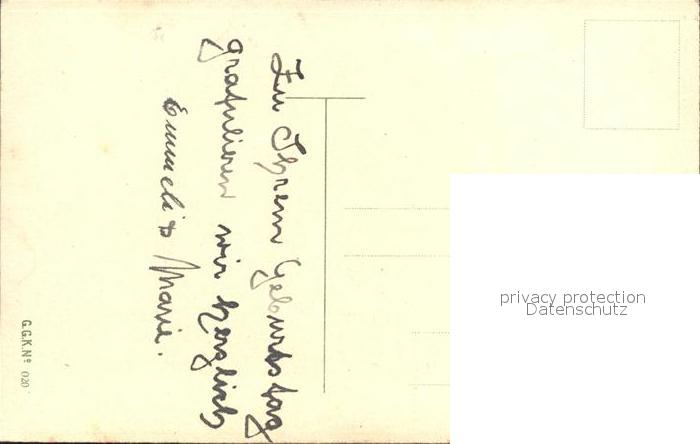 Zu Ihrem Geburtstag
gratulieren wir herzlich
Emmeli & Marie.
G.G.K.Nº 020
privacy protection
Datenschutz